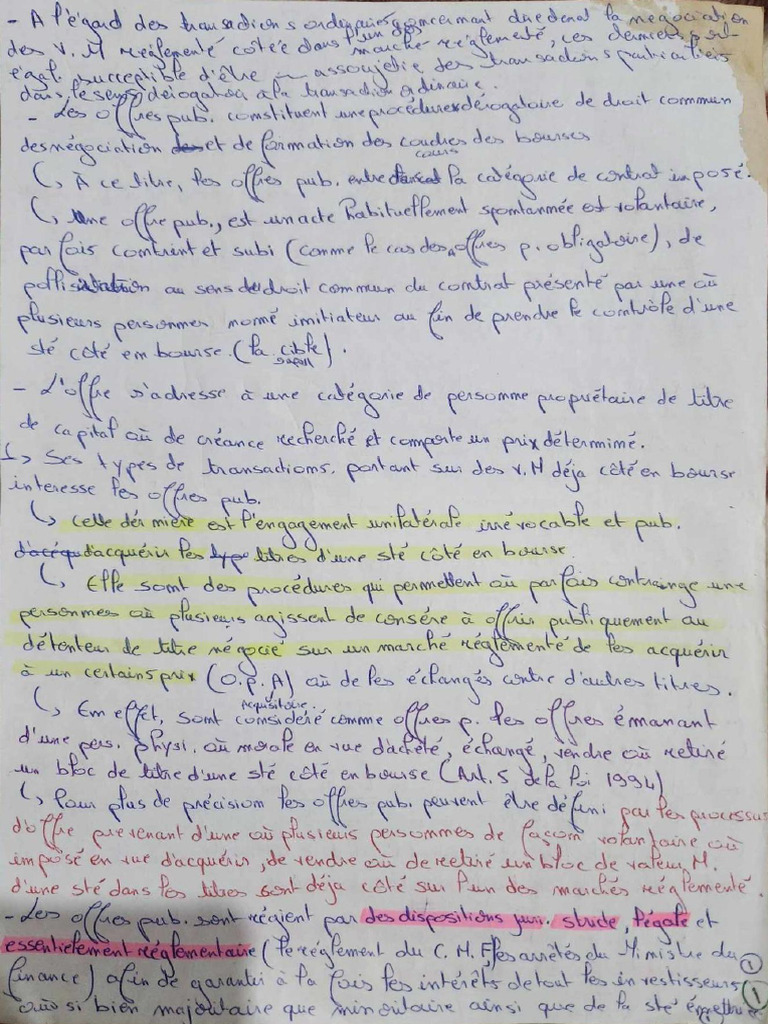 - A l'égard des transactions ordinaires concernant durant la négociation
des V. M réglementé côtée dans l'un des marché réglementé, ces derniers sont
égal. susceptible d'être assoujetie des transactions particuliers
dans le sens dérogatoire à la transaction ordinaire.
- Les offres pub. constituent une procédure dérogatoire de droit commun
des négociation et de formation des cours des bourses
↳ À ce titre, les offres pub. entre dans la catégorie de contrat imposé.
↳ Une offre pub., est un acte habituellement spontannée est volontaire,
parfois contrient et subi (comme le cas des offres p. obligatoire), de
pollicitation au sens de droit commun du contrat présenté par une où
plusieurs personnes nomé initiateur au fin de prendre le contrôle d'une
sté côté en bourse. (la cible).
- L'offre s'adresse à une catégorie de personne propriétaire de titre
de capital où de créance recherché et comporte un prix détérminé.
↳ Ses types de transactions. portant sur des V. M déja côté en bourse
interesse les offres pub.
↳ cette dérnière est l'engagement unilatérale irrévocable et pub.
d'acquérir les titres d'une sté côté en bourse.
↳ Elle sont des procédures qui permettent où parfois contrainge une
personnes où plusieurs agissent de consére à offrir publiquement au
détenteur de titre négocié sur un marché réglementé de les acquérir
à un certains prix (O.p.A) où de les échangés contre d'autres titres.
↳ En effet, sont considéré comme offres p. les offres émanant
d'une pers. physi. où morale en vue d'acheté, échangé, vendre où retiré
un bloc de titre d'une sté côté en bourse (Art. 5 de la loi 1994)
↳ Pour plus de précision les offres pub. peuvent être défini par les processus
d'offre prevenant d'une où plusieurs personnes de façom volontaire où
imposé en vue d'acquérir, de vendre où de retiré un bloc de valeur. M.
d'une sté dans les titres sont déja côté sur l'un des marchés réglementé.
- Les offres pub. sont régient par des dispositions juri. stricte, légale et
essentiellement réglementaire (le réglement du C. M. F, les arrétés du Ministre du
finance) afin de garanti à la fois les intérêts de tout les investisseurs
où si bien majoritaire que minoritaire ainsi que de la sté émettrice